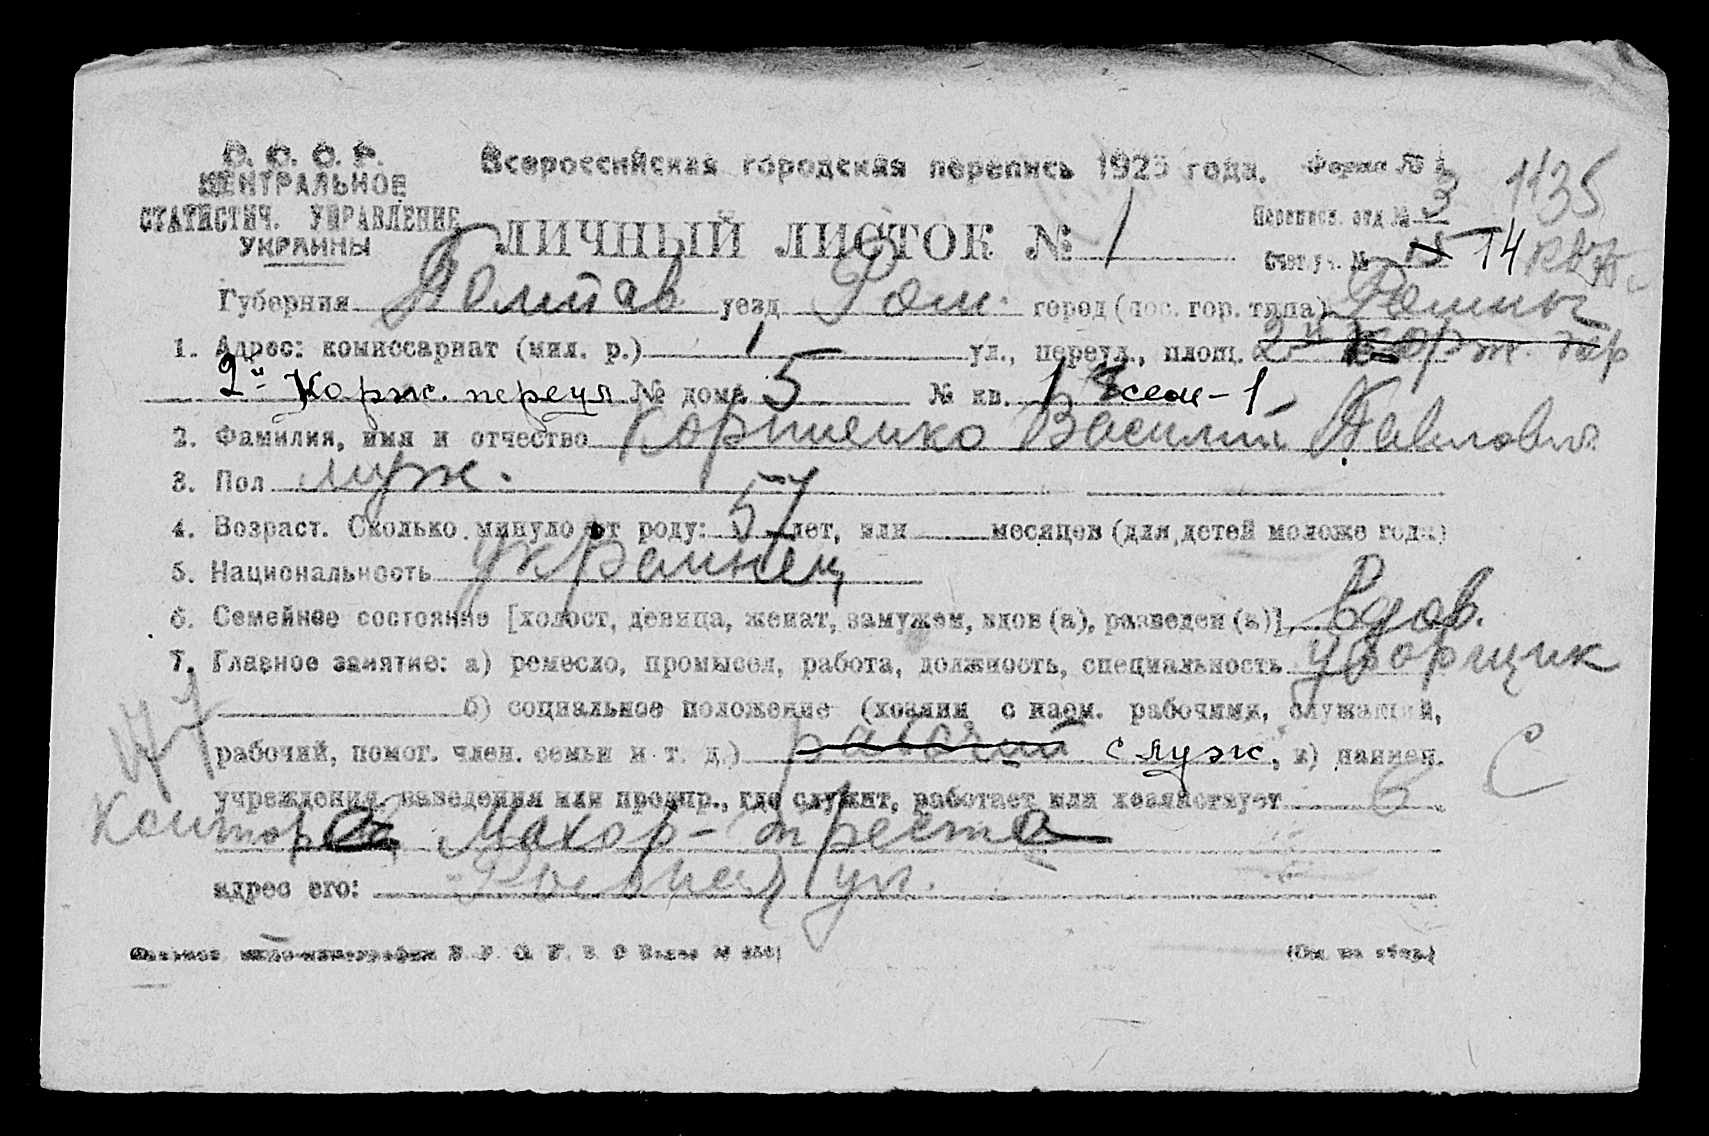 С. С. С. Р.
ЦЕНТРАЛЬНОЕ
СТАТИСТИЧ. УПРАВЛЕНИЕ
УКРАИНЫ
Всероссийская городская перепись 1923 года. Форма №
1135
ЛИЧНЫЙ ЛИСТОК № 1
Переписн. отд. № 3
Счет. уч. № 14
Губерния Полтав уезд Ром. город (пос. гор. типа) Ромны
1. Адрес: комиссариат (мил. р.) 1 ул., переул., площ. 2й Корж. пер
2й Корж. переул № дома 5 № кв. 1 - 1
2. Фамилия, имя и отчество Василий Павлович
3. Пол муж.
4. Возраст. Сколько минуло от роду: 57 лет, или месяцев (для детей моложе года)
5. Национальность украинец
6. Семейное состояние [холост, девица, женат, замужем, вдов (а), разведен (а)] вдов.
7. Главное занятие: а) ремесло, промысел, работа, должность, специальность уборщик
б) социальное положение (хозяин с наем. рабочими, служащий,
рабочий, помог. член. семьи и т. д.) рабочий служ, в) наимен.
С
учреждения, заведения или предпр., где служит, работает или хозяйствует в
Контора Махор-треста
адрес его: ул.
(См. на обор.)